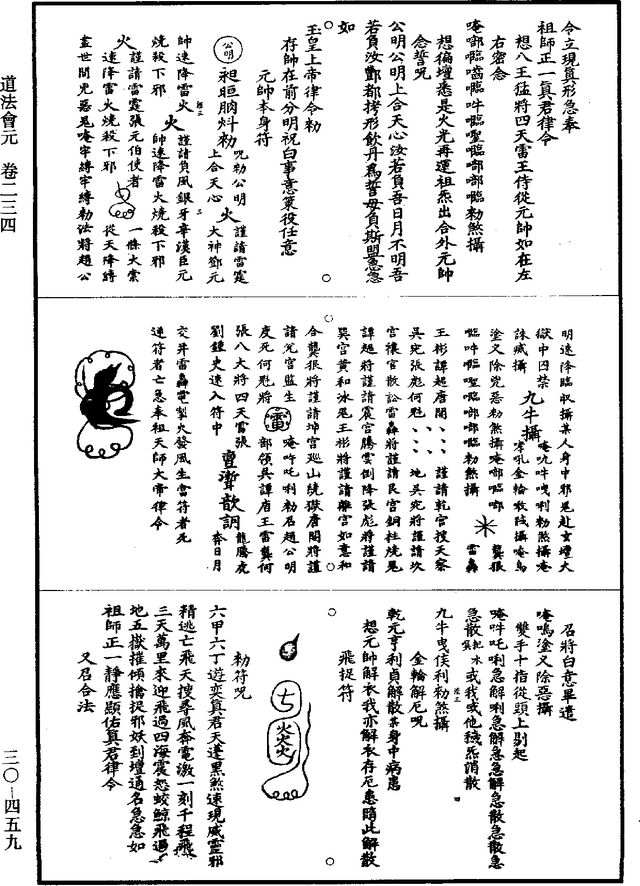 道法會元　卷二三四
三〇—四五九
令立現真形急奉
祖師正一真君律令
想八王猛將四天雷王侍從元帥如在左
右密念
唵啷𠻝𠻝吽𠻝啷啷𠻝勑煞攝
想徧壇悉是火光再運祖炁出合外元帥
念誓呪
公明公明上合天心汝若負吾日月不明吾
若負汝酆都拷形飲丹為誓毋負斯盟急急
如
玉皇上帝律令勑
存帥在前分明祝白事意策役任意
元帥本身符
公明
呪勑公明
上合天心
火
謹請雷霆
大神鄧元
帥速降雷火
火
謹請負風銀牙辛漢臣元
燒殺下邪
帥速降雷火燒殺下邪
謹請雷霆張元伯使者
火
速降雷火燒殺下邪
一條大索
從天降縛
盡世間兇惡鬼唵牢縛牢縛勑法將趙公
明速降臨收攝某人身中邪鬼赴玄壇大
獄中囚禁
九牛攝
唵吭吽曳唎勑煞攝唵
誅滅攝
唪吼金輪敕陔攝唵烏
塗又除兇惡勑煞攝唵啷
龔狠
雷轟
王彬譚超唐閤
謹請乾宮搜天察
吳宛張彪何魁
地吳宛將謹請坎
宮禳官散訟雷轟將謹請艮宮銅柱燒鬼
譚超將謹請震宮騰雲倒降張彪將謹請
巽宮黃和冰鬼王彬將謹請離宮如意和
合龔狠將謹請坤宮巡山繞獄唐閤將謹
請兌宮監生
唵吽吒唎勑召趙公明
度死何魁將
雷
部領吳譚唐王雷龔何
張八大將四天雷張
龍騰虎
劉鍾史速入符中
奔日月
交并雷轟電掣火發風生當符者死
逆符者亡急奉祖天師大帝律令
召將白意畢遣
唵嗚塗又除惡攝
雙手十指從頭上剔起
唵吽吒唎急解唎急解急急解急散急散急
急散
或我或他穢炁消散
九牛曳侯利勑煞攝
金輪解厄呪
乾元亨利貞解散某身中病患
想元帥解衣我亦解衣存厄患隨此解散
飛捉符
七
火火火
勑符呪
六甲六丁遊奕真君天蓬黑煞速現威靈邪
精逃亡飛天搜尋風奔電激一刻千程飛
三天萬里來迎飛過四海震怒蛟鯨飛過
地五嶽摧傾擒捉邪妖到壇通名急急如
祖師正一靜應顯佑真君律令
又召合法